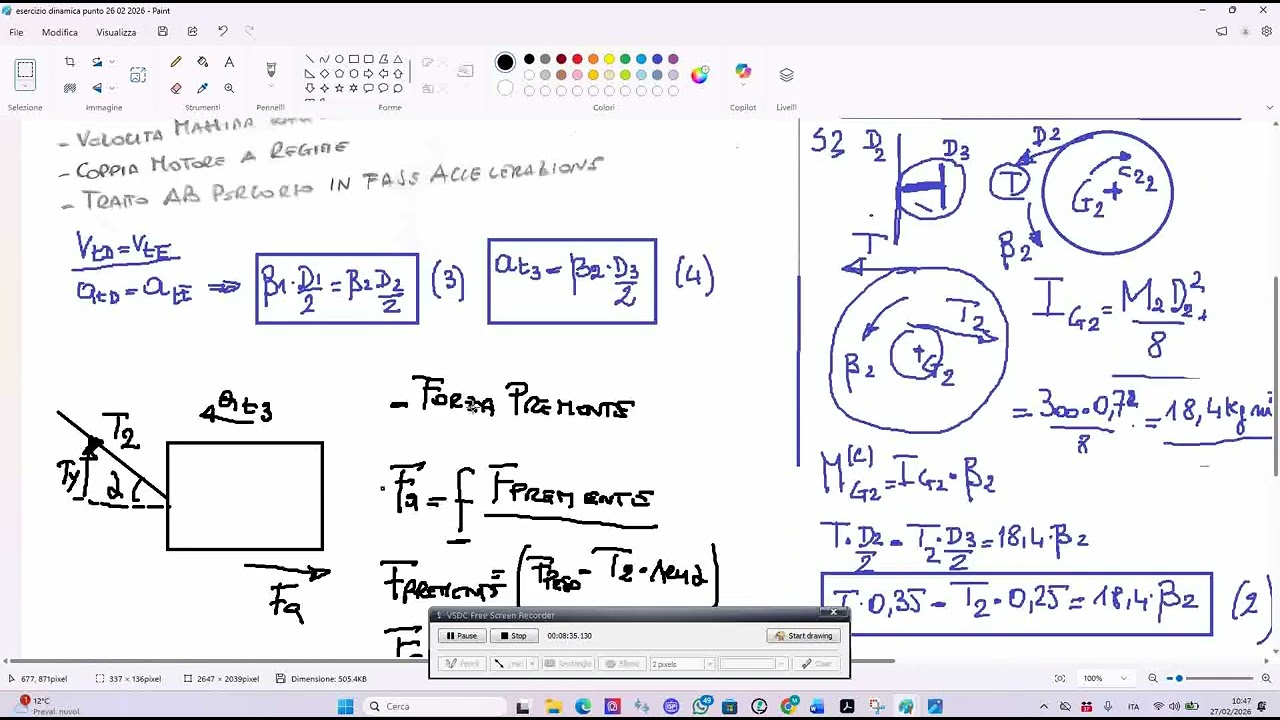 esercizio dinamica punto 26 02 2026 - Paint
File Modifica Visualizza
Selezione Immagine Strumenti Pennelli Forme Colori Copilot Livelli
- VELOCITA MASSIMA
- COPPIA MOTORE A REGIME
- TRATTO AB PERCORSO IN FASE ACCELERAZIONE
VtD = VtE
atD = atE ⇒ β1·D1/2 = β2 D2/2 (3) at3 = β2·D3/2 (4)
at3
T2
Ty
α
Fa
- FORZA PREMENTE
Fa = f FPREMENTE
FPREMENTE = (FPESO - T2·senα)
F
D2 D3 D2
T
G2
β2
T
T2
β2 G2
IG2 = M2D2²/8
= 300·0,7²/8 = 18,4 kg m²
MG2(e) = IG2·β2
T·D2/2 - T2·D3/2 = 18,4·β2
T·0,35 - T2·0,25 = 18,4·β2 (2)
VSDC Free Screen Recorder
Pause Stop 00:08:35.130 Start drawing
Pencil Line Rectangle Ellipse 2 pixels Clear
677, 871pixel 337 × 136pixel 2647 × 2039pixel Dimensione: 505.4KB 100%
12°C
Preval. nuvol.
Cerca
49
ITA
10:47
27/02/2026